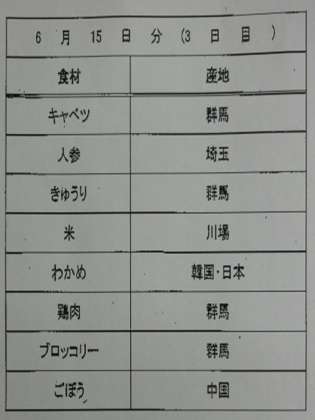 6月15日分(3日目)
食材 産地
キャベツ 群馬
人参 埼玉
きゅうり 群馬
米 川場
わかめ 韓国・日本
鶏肉 群馬
ブロッコリー 群馬
ごぼう 中国